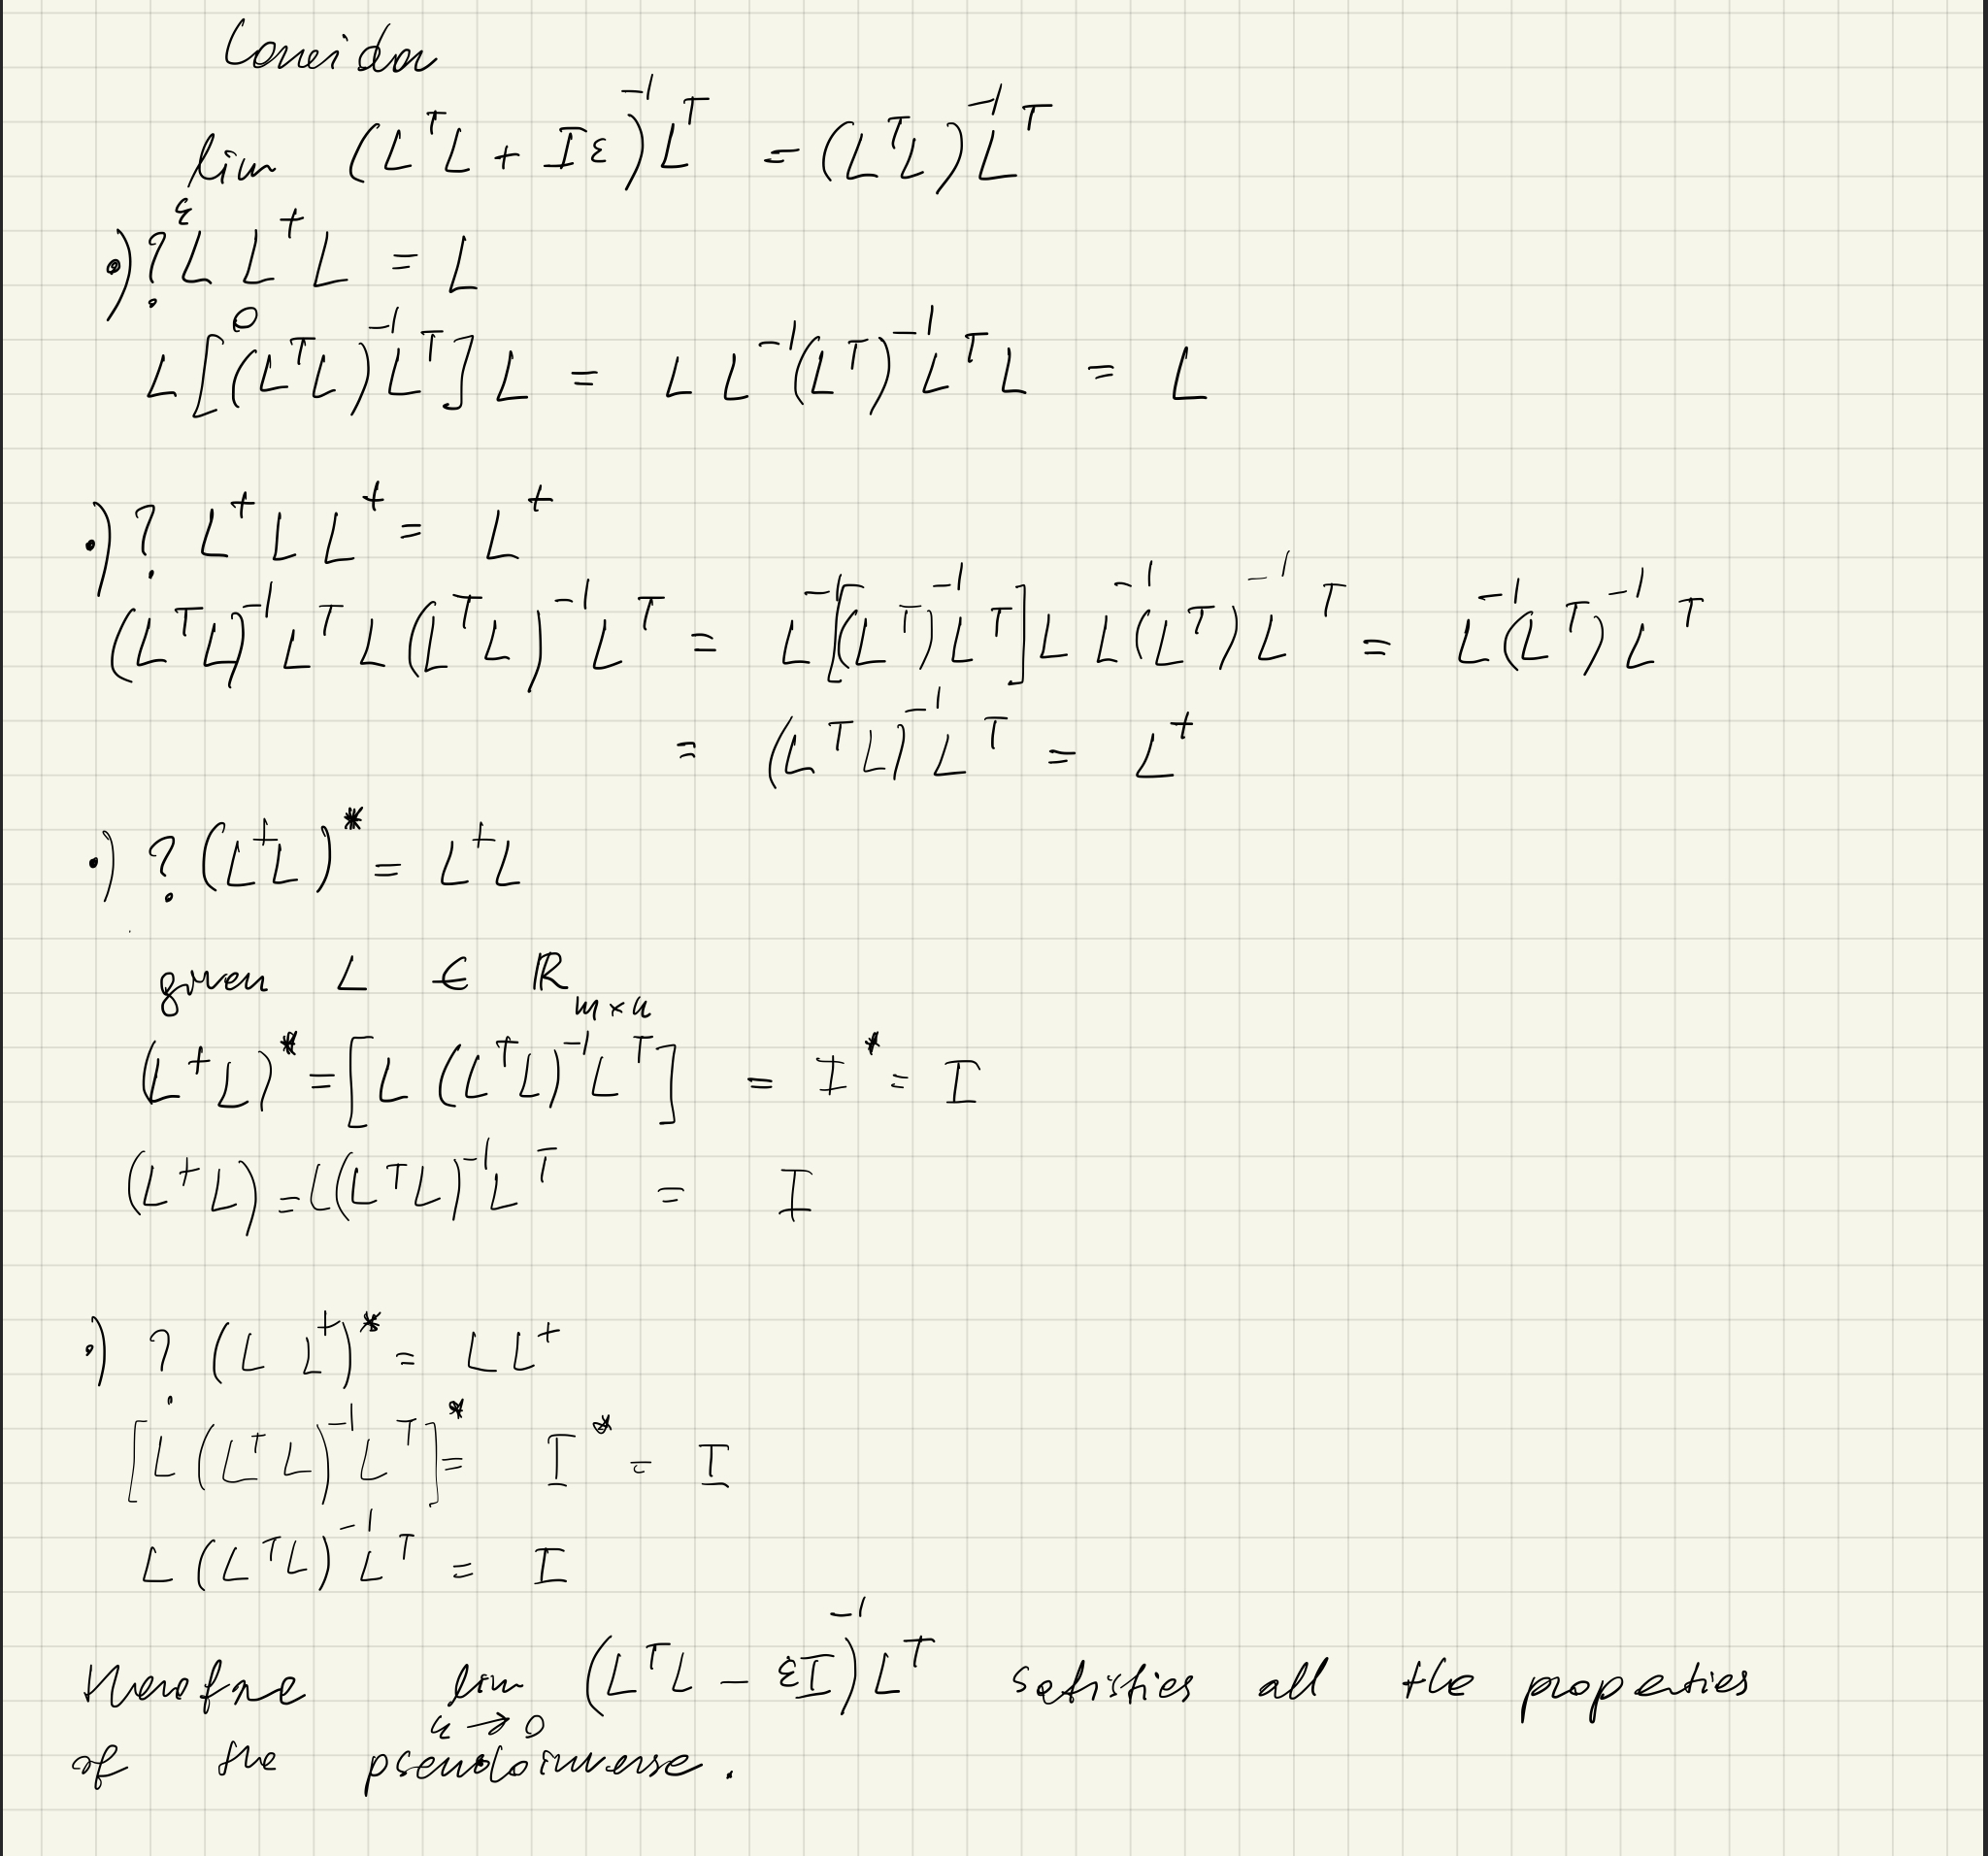 Consider
lim (LᵀL + Iε)⁻¹Lᵀ = (LᵀL)⁻¹Lᵀ
ε
•) ? L L⁺ L = L
0
L[(LᵀL)⁻¹Lᵀ]L = L L⁻¹(Lᵀ)⁻¹LᵀL = L
•) ? L⁺ L L⁺ = L⁺
(LᵀL)⁻¹LᵀL(LᵀL)⁻¹Lᵀ = L⁻¹[(Lᵀ)⁻¹Lᵀ]L L⁻¹(Lᵀ)⁻¹Lᵀ = L⁻¹(Lᵀ)⁻¹Lᵀ
= (LᵀL)⁻¹Lᵀ = L⁺
•) ? (L⁺L)* = L⁺L
given L ∈ ℝ m×n
(L⁺L)* = [L (LᵀL)⁻¹Lᵀ] = I* = I
(L⁺L) = L(LᵀL)⁻¹Lᵀ = I
•) ? (L L⁺)* = LL⁺
[L (LᵀL)⁻¹Lᵀ]* = I* = I
L (LᵀL)⁻¹Lᵀ = I
therefore lim (LᵀL − εI)⁻¹Lᵀ satisfies all the properties
ε → 0
of the pseudoinverse.